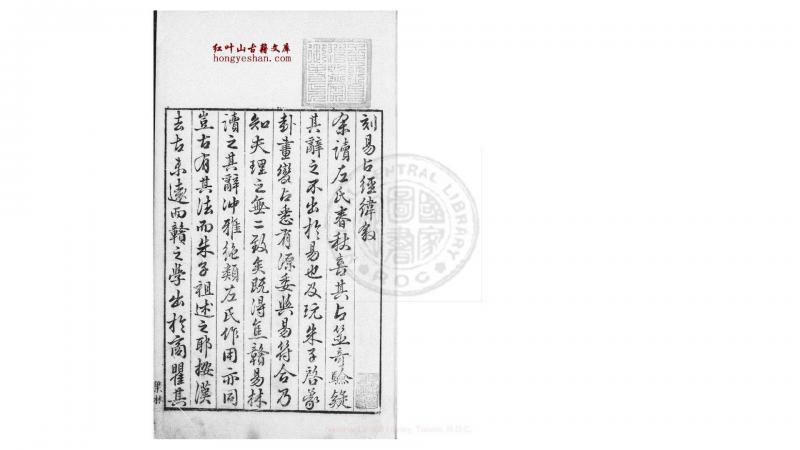 红叶山古籍文库
hongyeshan.com
刻易占經緯敘
余讀左氏春秋喜其占筮奇驗疑
其辭之不出於易也及玩朱子啓蒙
卦畫變占悉有源委與易符合乃
知夫理之無二致矣既得焦贛易林
讀之其辭冲雅絶類左氏作用亦同
豈古有其法而朱子祖述之耶按漢
去古未遠而贛之學出於商瞿其
CENTRAL LIBRARY
R.O.C.
國家
圖書館